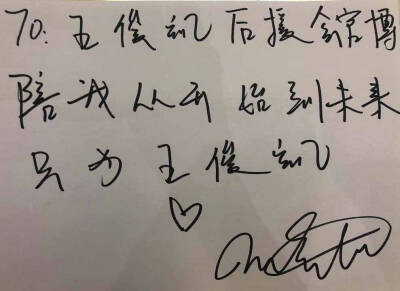 TO: 王俊凯后援会官博
陪我从开始到未来
只为王俊凯
♡